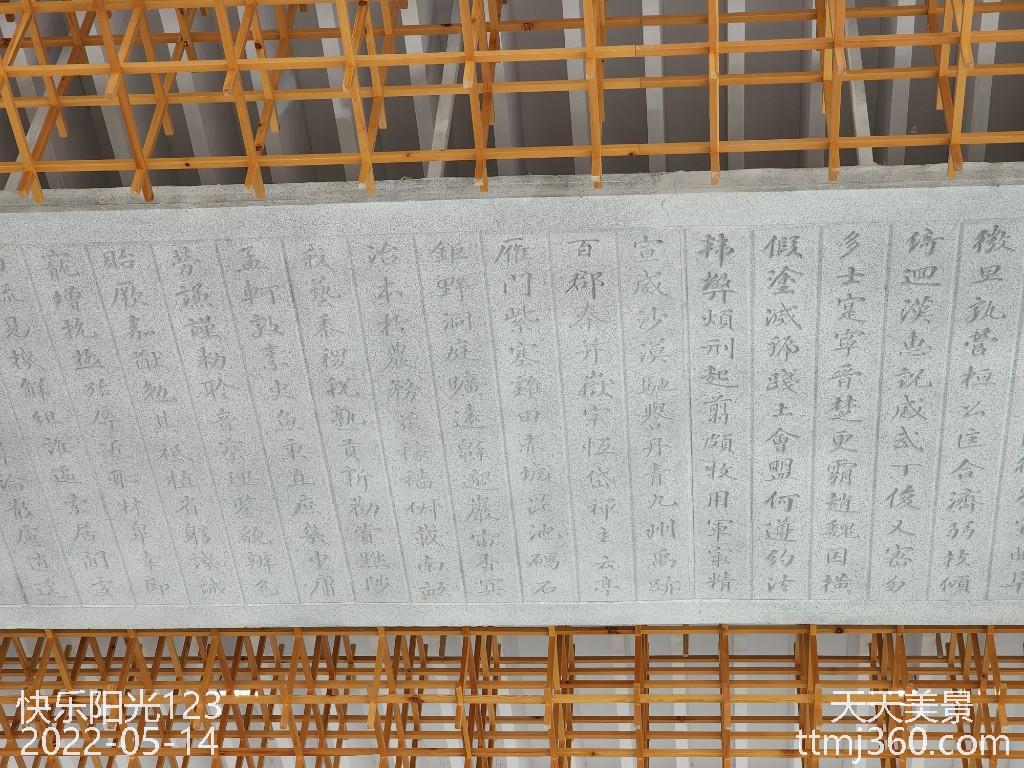 微旦孰營桓公匡合濟弱扶傾
綺迴漢惠說感武丁俊乂密勿
多士寔寧晉楚更霸趙魏困橫
假塗滅虢踐土會盟何遵約法
韓弊煩刑起翦頗牧用軍最精
宣威沙漠馳譽丹青九州禹跡
百郡秦并嶽宗恆岱禪主云亭
雁門紫塞雞田赤城昆池碣石
鉅野洞庭曠遠緜邈巖岫杳冥
治本於農務茲稼穡俶載南畝
我藝黍稷稅熟貢新勸賞黜陟
孟軻敦素史魚秉直庶幾中庸
勞謙謹敕聆音察理鑒貌辨色
貽厥嘉猷勉其祗植省躬譏誡
寵增抗極殆辱近恥林皋幸即
見機解組誰逼索居閒處
論散慮逍遙
快乐阳光123
2022-05-14
天天美景
ttmj360.com